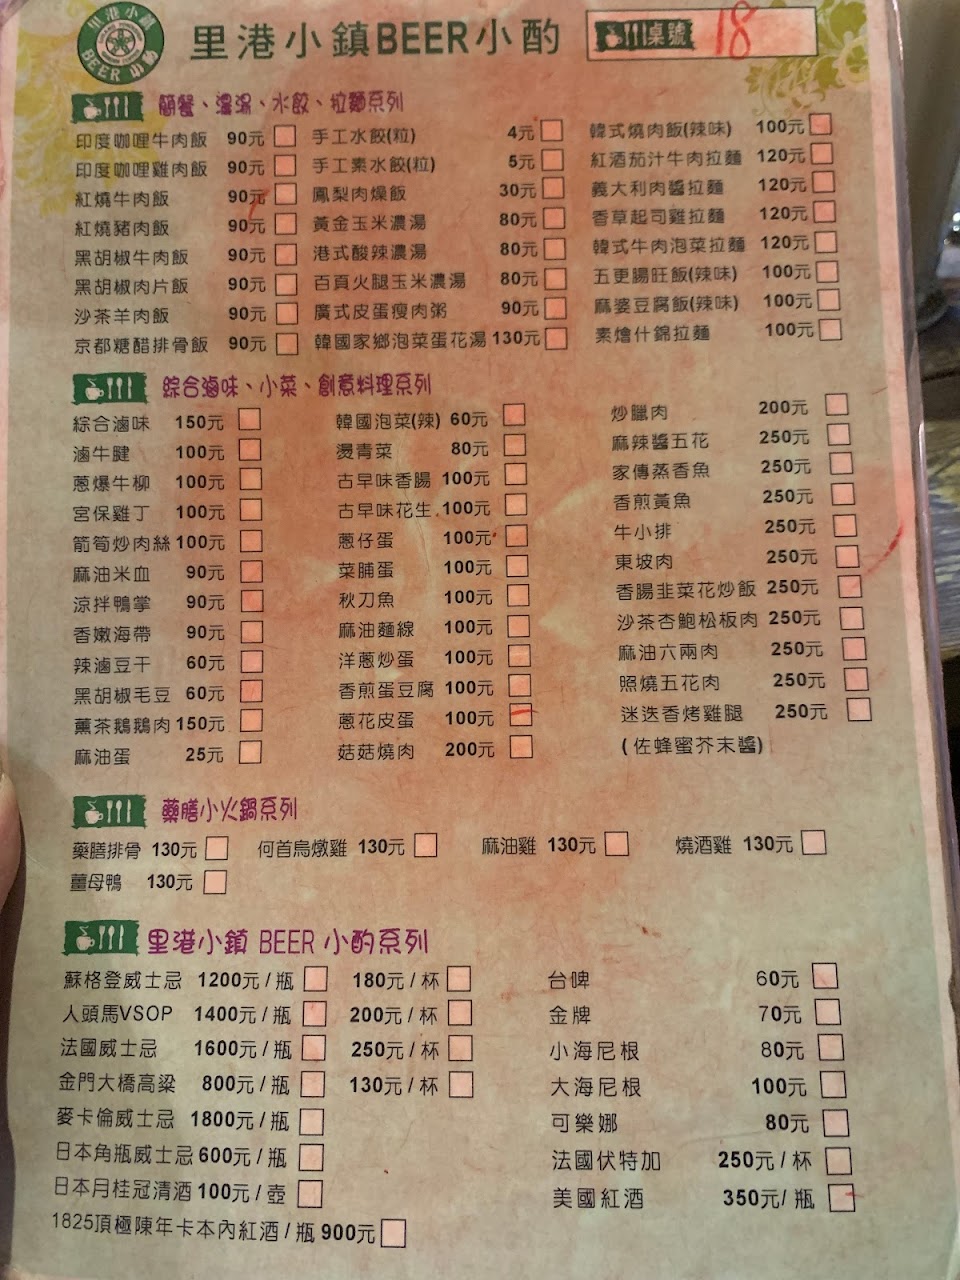 里港小鎮
BEER 小酌
里港小鎮BEER小酌
桌號 18
簡餐、湯湯、水餃、拉麵系列
印度咖哩牛肉飯 90元 手工水餃(粒) 4元 韓式燒肉飯(辣味) 100元
印度咖哩雞肉飯 90元 手工素水餃(粒) 5元 紅酒茄汁牛肉拉麵 120元
紅燒牛肉飯 90元 鳳梨肉燥飯 30元 義大利肉醬拉麵 120元
紅燒豬肉飯 90元 黃金玉米濃湯 80元 香草起司雞拉麵 120元
黑胡椒牛肉飯 90元 港式酸辣濃湯 80元 韓式牛肉泡菜拉麵 120元
黑胡椒肉片飯 90元 百頁火腿玉米濃湯 80元 五更腸旺飯(辣味) 100元
沙茶羊肉飯 90元 廣式皮蛋瘦肉粥 90元 麻婆豆腐飯(辣味) 100元
京都糖醋排骨飯 90元 韓國家鄉泡菜蛋花湯 130元 素燴什錦拉麵 100元
綜合滷味、小菜、創意料理系列
綜合滷味 150元 韓國泡菜(辣) 60元 炒臘肉 200元
滷牛腱 100元 燙青菜 80元 麻辣醬五花 250元
蔥爆牛柳 100元 古早味香腸 100元 家傳蒸香魚 250元
宮保雞丁 100元 古早味花生 100元 香煎黃魚 250元
箭筍炒肉絲 100元 蔥仔蛋 100元 牛小排 250元
麻油米血 90元 菜脯蛋 100元 東坡肉 250元
涼拌鴨掌 90元 秋刀魚 100元 香腸韭菜花炒飯 250元
香嫩海帶 90元 麻油麵線 100元 沙茶杏鮑松板肉 250元
辣滷豆干 60元 洋蔥炒蛋 100元 麻油六兩肉 250元
黑胡椒毛豆 60元 香煎蛋豆腐 100元 照燒五花肉 250元
薰茶鵝鵝肉 150元 蔥花皮蛋 100元 迷迭香烤雞腿 250元
麻油蛋 25元 菇菇燒肉 200元 (佐蜂蜜芥末醬)
藥膳小火鍋系列
藥膳排骨 130元 何首烏燉雞 130元 麻油雞 130元 燒酒雞 130元
薑母鴨 130元
里港小鎮 BEER 小酌系列
蘇格登威士忌 1200元/瓶 180元/杯 台啤 60元
人頭馬VSOP 1400元/瓶 200元/杯 金牌 70元
法國威士忌 1600元/瓶 250元/杯 小海尼根 80元
金門大橋高粱 800元/瓶 130元/杯 大海尼根 100元
麥卡倫威士忌 1800元/瓶 可樂娜 80元
日本角瓶威士忌 600元/瓶 法國伏特加 250元/杯
日本月桂冠清酒 100元/壺 美國紅酒 350元/瓶
1825頂極陳年卡本內紅酒/瓶 900元